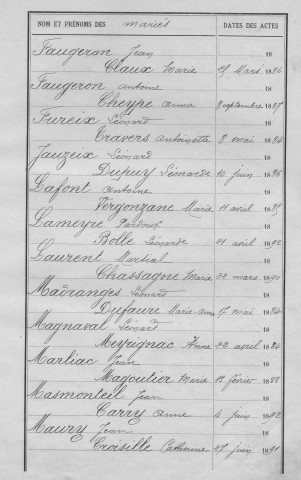 NOM ET PRÉNOMS DES mariés DATES DES ACTES
Faugeron Jean 18
Claux Marie 27 Mars 1886
Faugeron Antoine 18
Cheype Anna 8 septembre 1887
Fureix Léonard 18
Travers Antoinette 8 mai 1884
Jauzeix Léonard 18
Dupuy Léonarde 10 juin 1886
Lafont Antoine 18
Vergonzane Marie 11 avril 1885
Lameyre Pardoux 18
Bolle Léonarde 21 avril 1892
Laurent Martial 18
Chassagne Marie 22 mars 1890
Madranges Léonard 18
Dufaure Marie Anne 17 mai 1884
Magnaval Léonard 18
Meyrignac Anne 22 avril 1884
Marliac Jean 18
Magoutier Marie 12 février 1888
Masmonteil Jean 18
Carry Anne 4 juin 1892
Maury Jean 18
Croisille Catherine 27 juin 1891